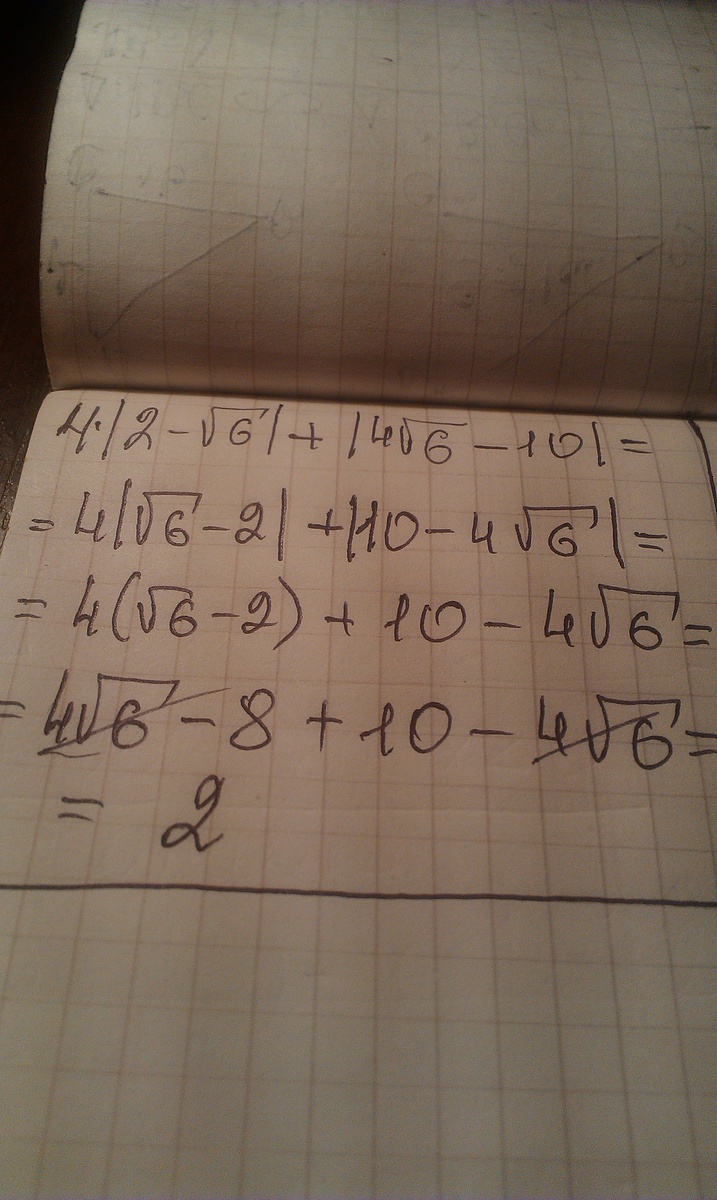 4·|2-√6|+|4√6-10|=
=4|√6-2|+|10-4√6|=
=4(√6-2)+10-4√6=
=4√6-8+10-4√6=
=2